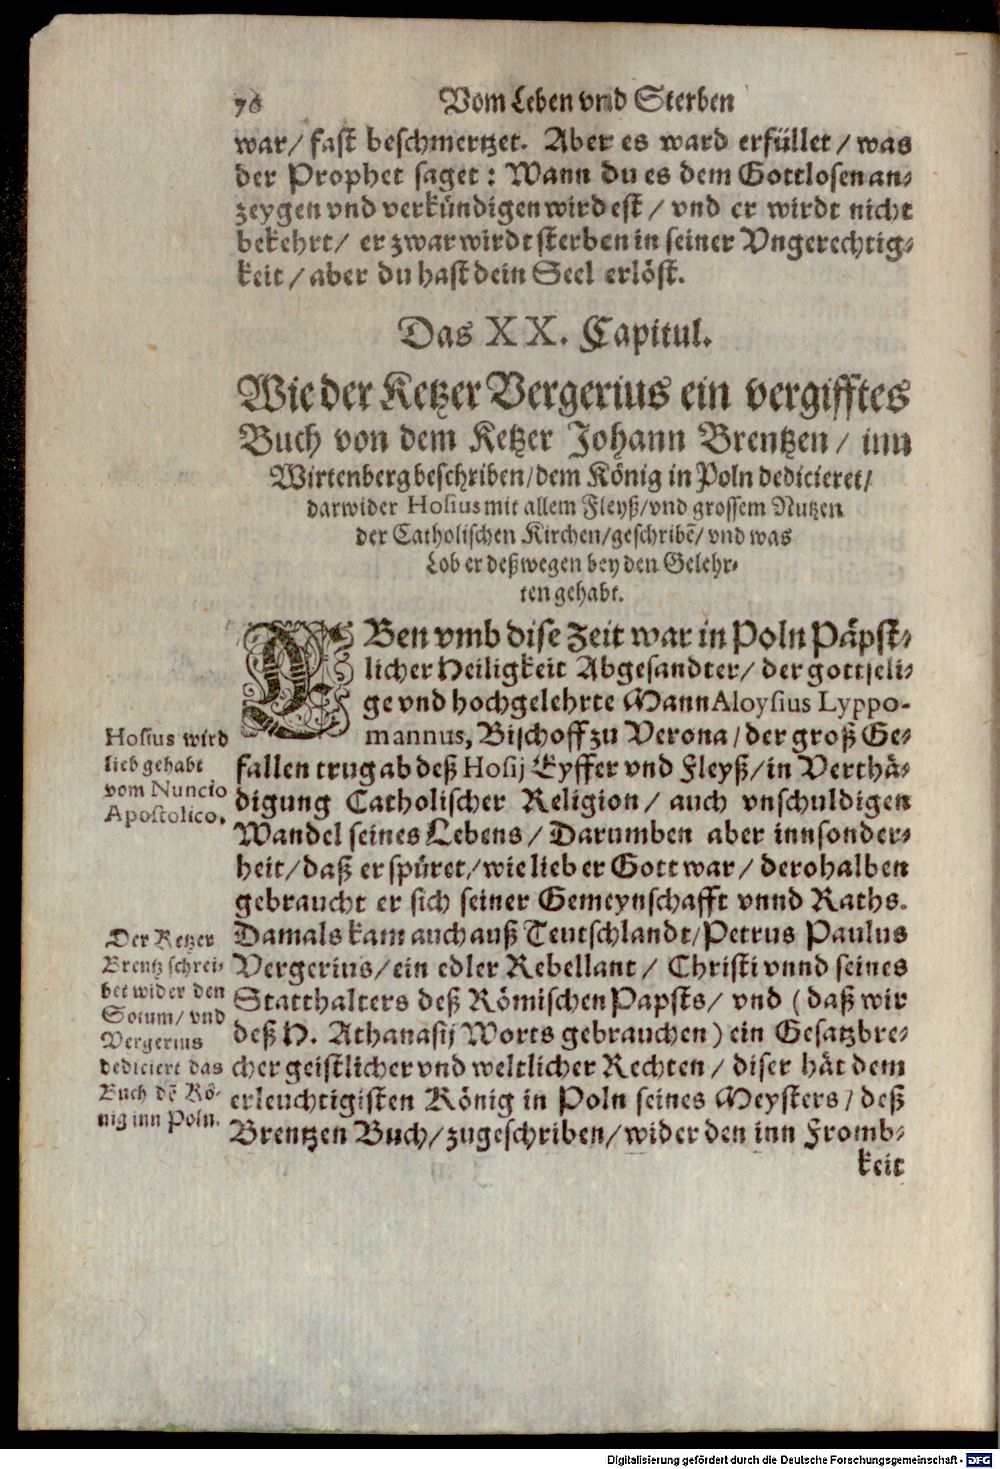 76 Vom Leben vnd Sterben
war/ fast beschmertzet. Aber es ward erfüllet/ was
der Prophet saget: Wann du es dem Gottlosen an-
zeygen vnd verkündigen wirdest/ vnd er wirdt nicht
bekehrt/ er zwar wirdt sterben in seiner Vngerechtig-
keit/ aber du hast dein Seel erlöst.
Das XX. Capitul.
Wie der Ketzer Vergerius ein vergifftes
Buch von dem Ketzer Johann Brentzen/ inn
Wirtenberg beschriben/ dem König in Poln dedicieret/
darwider Hosius mit allem Fleyß/ vnd grossem Nutzen
der Catholischen Kirchen/ geschribē/ vnd was
Lob er deßwegen bey den Gelehr-
ten gehabt.
EBen vmb dise Zeit war in Poln Päpst-
licher Heiligkeit Abgesandter/ der gottseli-
ge vnd hochgelehrte Mann Aloysius Lyppo-
mannus, Bischoff zu Verona/ der groß Ge-
fallen trug ab deß Hosij Eyffer vnd Fleyß/ in Verthä-
digung Catholischer Religion/ auch vnschuldigen
Wandel seines Lebens/ Darumben aber innsonder-
heit/ daß er spüret/ wie lieb er Gott war/ derohalben
gebraucht er sich seiner Gemeynschafft vnnd Raths.
Damals kam auch auß Teutschlandt/ Petrus Paulus
Vergerius/ ein edler Rebellant/ Christi vnnd seines
Statthalters deß Römischen Papsts/ vnd (daß wir
deß H. Athanasij Worts gebrauchen) ein Gesatzbre-
cher geistlicher vnd weltlicher Rechten/ diser hät dem
erleuchtigisten König in Poln seines Meysters/ deß
Brentzen Buch/ zugeschriben/ wider den inn Fromb-
keit
Hosius wird
lieb gehabt
vom Nuncio
Apostolico.
Der Ketzer
Brentz schrei-
bet wider den
Sotum/ vnd
Vergerius
dediciert das
Buch dē Kö-
nig inn Poln.
Digitalisierung gefördert durch die Deutsche Forschungsgemeinschaft - DFG